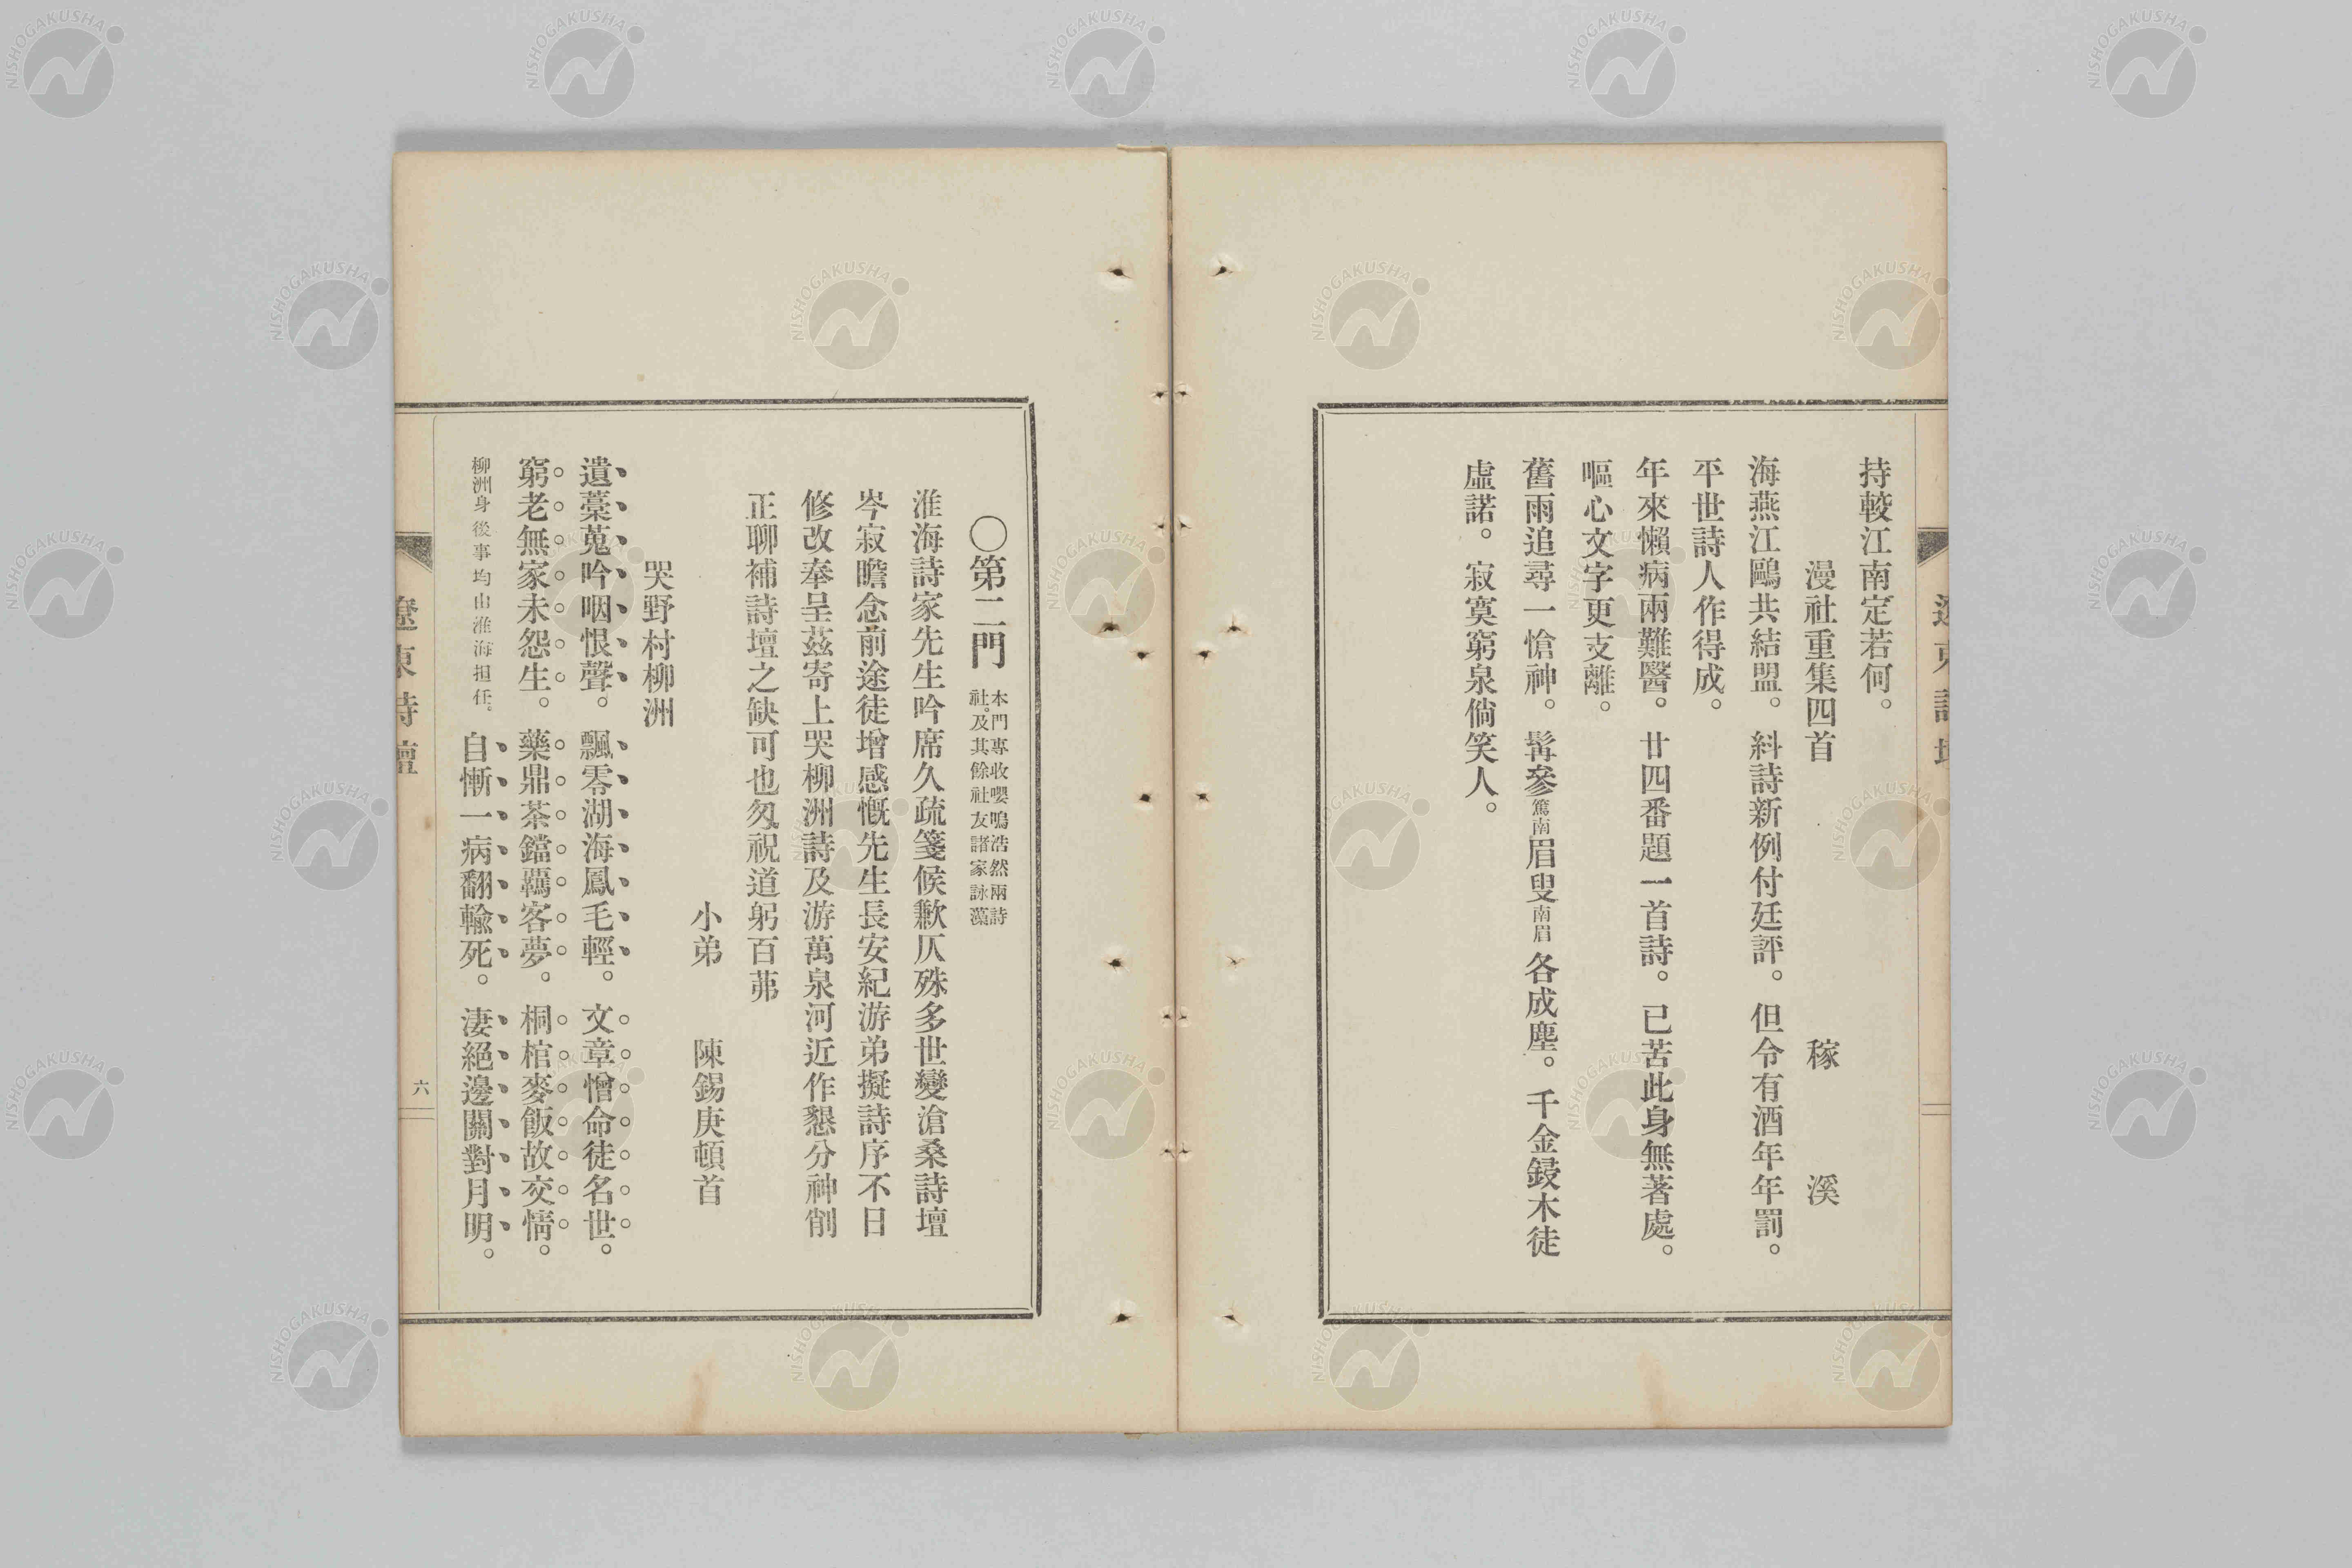 持較江南定若何。
漫社重集四首 稼溪
海燕江鷗共結盟。斜詩新例付廷評。但令有酒年年罰。
平世詩人作得成。
年來懶病兩難醫。廿四番題一首詩。已苦此身無著處。
嘔心文字更支離。
舊雨追尋一愴神。髯參篤南眉叟南眉各成塵。千金鋟木徒
虛諾。寂寞窮泉倘笑人。
遼東詩壇
〇第二門 本門專收嚶鳴浩然兩詩
社。及其餘社友諸家詠藻
淮海詩家先生吟席久疏箋候歉仄殊多世變滄桑詩壇
岑寂瞻念前途徒增感慨先生長安紀游弟擬詩序不日
修改奉呈茲寄上哭柳洲詩及游萬泉河近作懇分神削
正聊補詩壇之缺可也匆祝道躬百茀
小弟 陳錫庚頓首
哭野村柳洲
遺藁蒐吟咽恨聲。飄零湖海鳳毛輕。文章憎命徒名世。
窮老無家未怨生。藥鼎茶鐺羈客夢。桐棺麥飯故交情。
柳洲身後事均由淮海担任。自慚一病翻輸死。淒絕邊關對月明。
遼東詩壇
六
NISHOGAKUSHA